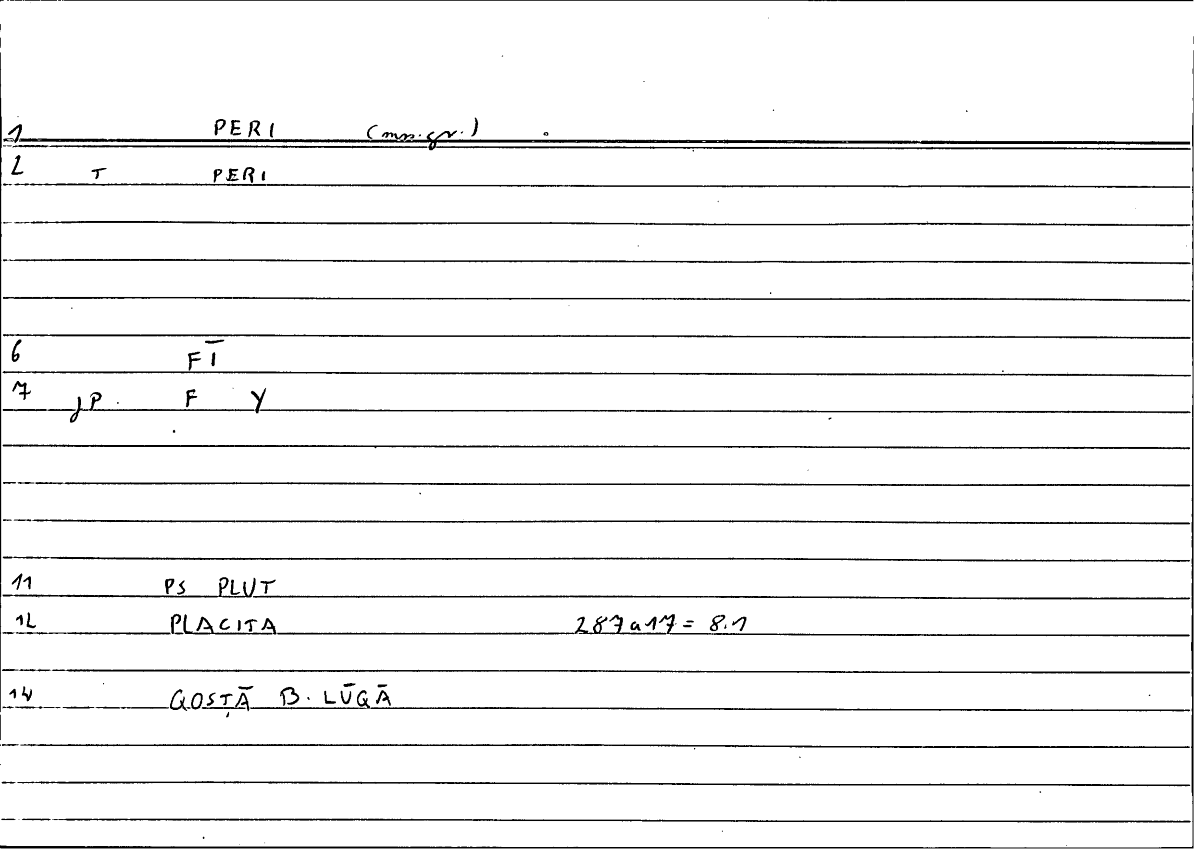 1 PERI (mss.gr.)
2 T PERI
6 FĪ
7 JP. F Y
11 PS PLUT
12 PLACITA 287a17 = 8.1
14 QOSṬĀ B. LŪQĀ